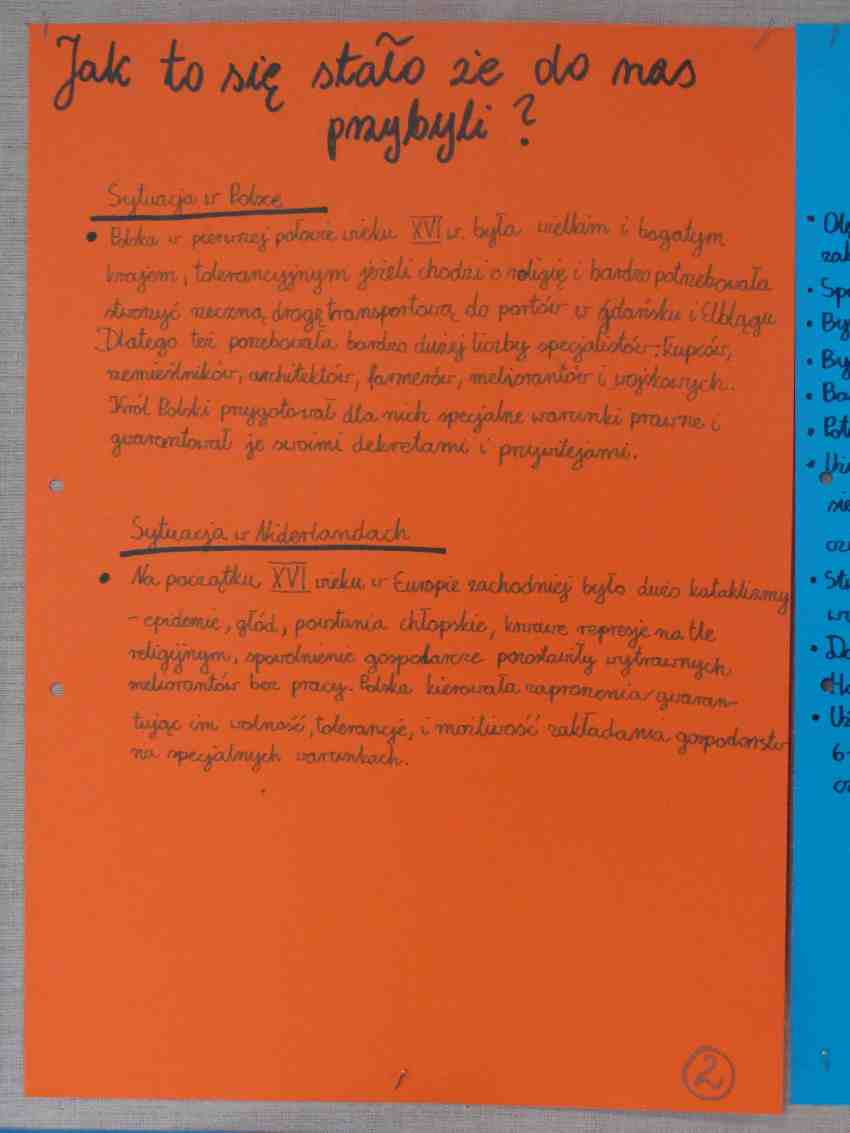 Jak to się stało że do nas
przybyli ?
Sytuacja w Polsce
• Polska w pierwszej połowie wieku XVI w. była wielkim i bogatym
krajem, tolerancyjnym jeżeli chodzi o religię i bardzo potrzebowała
stworzyć rzeczną drogę transportową do portów w Gdańsku i Elblągu
Dlatego też porzebowała bardzo dużej liczby specjalistów: kupców,
rzemieślników, architektów, farmerów, meliorantów i wojskowych.
Król Polski przygotował dla nich specjalne warunki prawne i
gwarantował je swoimi dekretami i przywilejami.
Sytuacja w Niderlandach
• Na początku XVI wieku w Europie zachodniej było dużo kataklizmy
- epidemie, głód, powstania chłopskie, krwawe represje na tle
religijnym, spowolnienie gospodarcze pozostawiły wytrawnych
meliorantów bez pracy. Polska kierowała zaproszenia gwaran-
tując im wolność, tolerancję, i możliwość zakładania gospodarstw
na specjalnych warunkach.
2
• Olę
zak
• Spe
• By
• By
• Ba
• Pot
sie
• Stu
• Do
6-